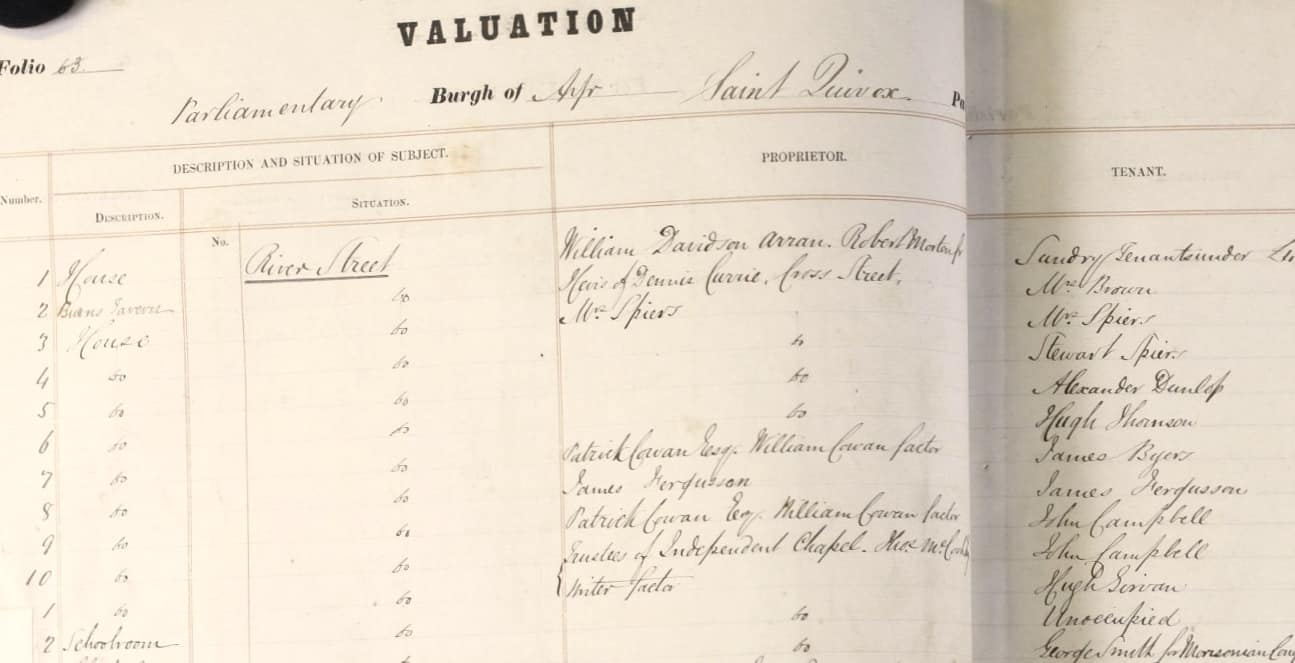 VALUATION
Folio 63
Parliamentary Burgh of Ayr Saint Quivox
DESCRIPTION AND SITUATION OF SUBJECT. PROPRIETOR. TENANT.
Number. DESCRIPTION. SITUATION.
No.
1 House River Street William Davidson Arran. Robert Morton Sundry Tenants under
2 Tavern Do Heirs of Dennis Currie, Cross Street, Mrs Brown
3 House Do Mrs Spiers Mrs Spiers
4 Do Do Do Stewart Spiers
5 Do Do Do Alexander Dunlop
6 Do Do Do Hugh Thomson
7 Do Do Patrick Cowan Esqr. William Cowan factor James Byers
8 Do Do James Fergusson James Fergusson
9 Do Do Patrick Cowan Esqr. William Cowan factor John Campbell
10 Do Do Trustees of Independent Chapel. Thos John Campbell
Writer factor Hugh Girvan
1 Do Do Do Unoccupied
2 Schoolroom Do Do George Smith for Morisonian